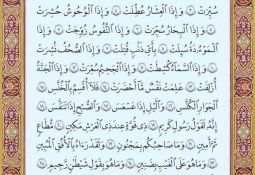 سُيِّرَتْ ٣ وَإِذَا ٱلْعِشَارُ عُطِّلَتْ ٤ وَإِذَا ٱلْوُحُوشُ حُشِرَتْ
٥ وَإِذَا ٱلْبِحَارُ سُجِّرَتْ ٦ وَإِذَا ٱلنُّفُوسُ زُوِّجَتْ ٧ وَإِذَا
ٱلْمَوْءُۥدَةُ سُئِلَتْ ٨ بِأَيِّ ذَنۢبٍ قُتِلَتْ ٩ وَإِذَا ٱلصُّحُفُ نُشِرَتْ
١٠ وَإِذَا ٱلسَّمَآءُ كُشِطَتْ ١١ وَإِذَا ٱلْجَحِيمُ سُعِّرَتْ ١٢ وَإِذَا ٱلْجَنَّةُ
أُزْلِفَتْ ١٣ عَلِمَتْ نَفْسٌ مَّآ أَحْضَرَتْ ١٤ فَلَآ أُقْسِمُ بِٱلْخُنَّسِ ١٥
ٱلْجَوَارِ ٱلْكُنَّسِ ١٦ وَٱلَّيْلِ إِذَا عَسْعَسَ ١٧ وَٱلصُّبْحِ إِذَا تَنَفَّسَ ١٨
إِنَّهُۥ لَقَوْلُ رَسُولٍ كَرِيمٍ ١٩ ذِى قُوَّةٍ عِندَ ذِى ٱلْعَرْشِ مَكِينٍ ٢٠ مُّطَاعٍ
ثَمَّ أَمِينٍ ٢١ وَمَا صَاحِبُكُم بِمَجْنُونٍ ٢٢ وَلَقَدْ رَءَاهُ بِٱلْأُفُقِ ٱلْمُبِينِ
٢٣ وَمَا هُوَ عَلَى ٱلْغَيْبِ بِضَنِينٍ ٢٤ وَمَا هُوَ بِقَوْلِ شَيْطَٰنٍ رَّجِيمٍ ٢٥